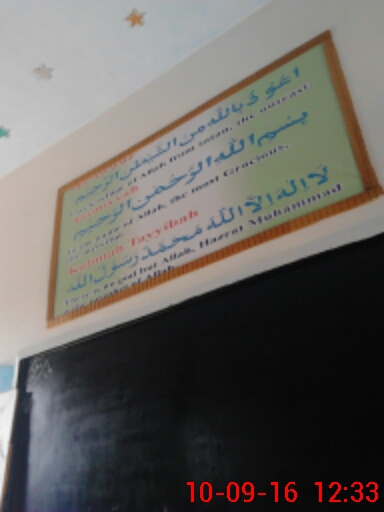 اعوذ بالله من الشيطن الرجيم
of Allah from satan, the outcast.
Tasmiyyah
بسم الله الرحمن الرحيم
In the name of Allah, the most Gracious,
Kalimah Tayyibah
لا اله الا الله محمد رسول الله
There is no god but Allah, Hazrat Muhammad
of Allah
10-09-16 12:33